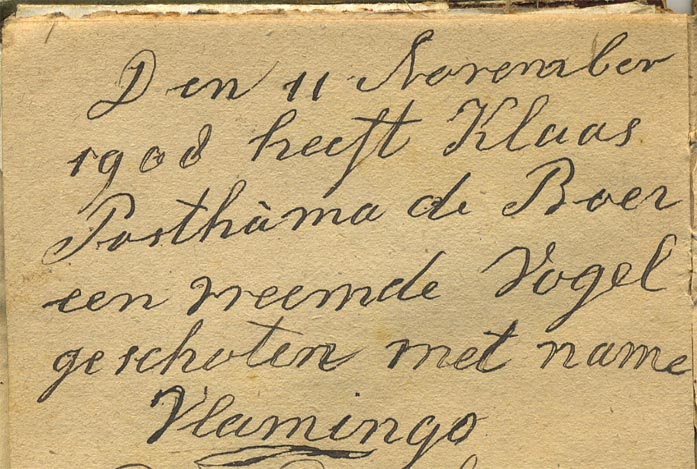 Den 11 November
1908 heeft Klaas
Posthùma de Boer
een vreemde Vogel
geschoten met name
Vlamingo